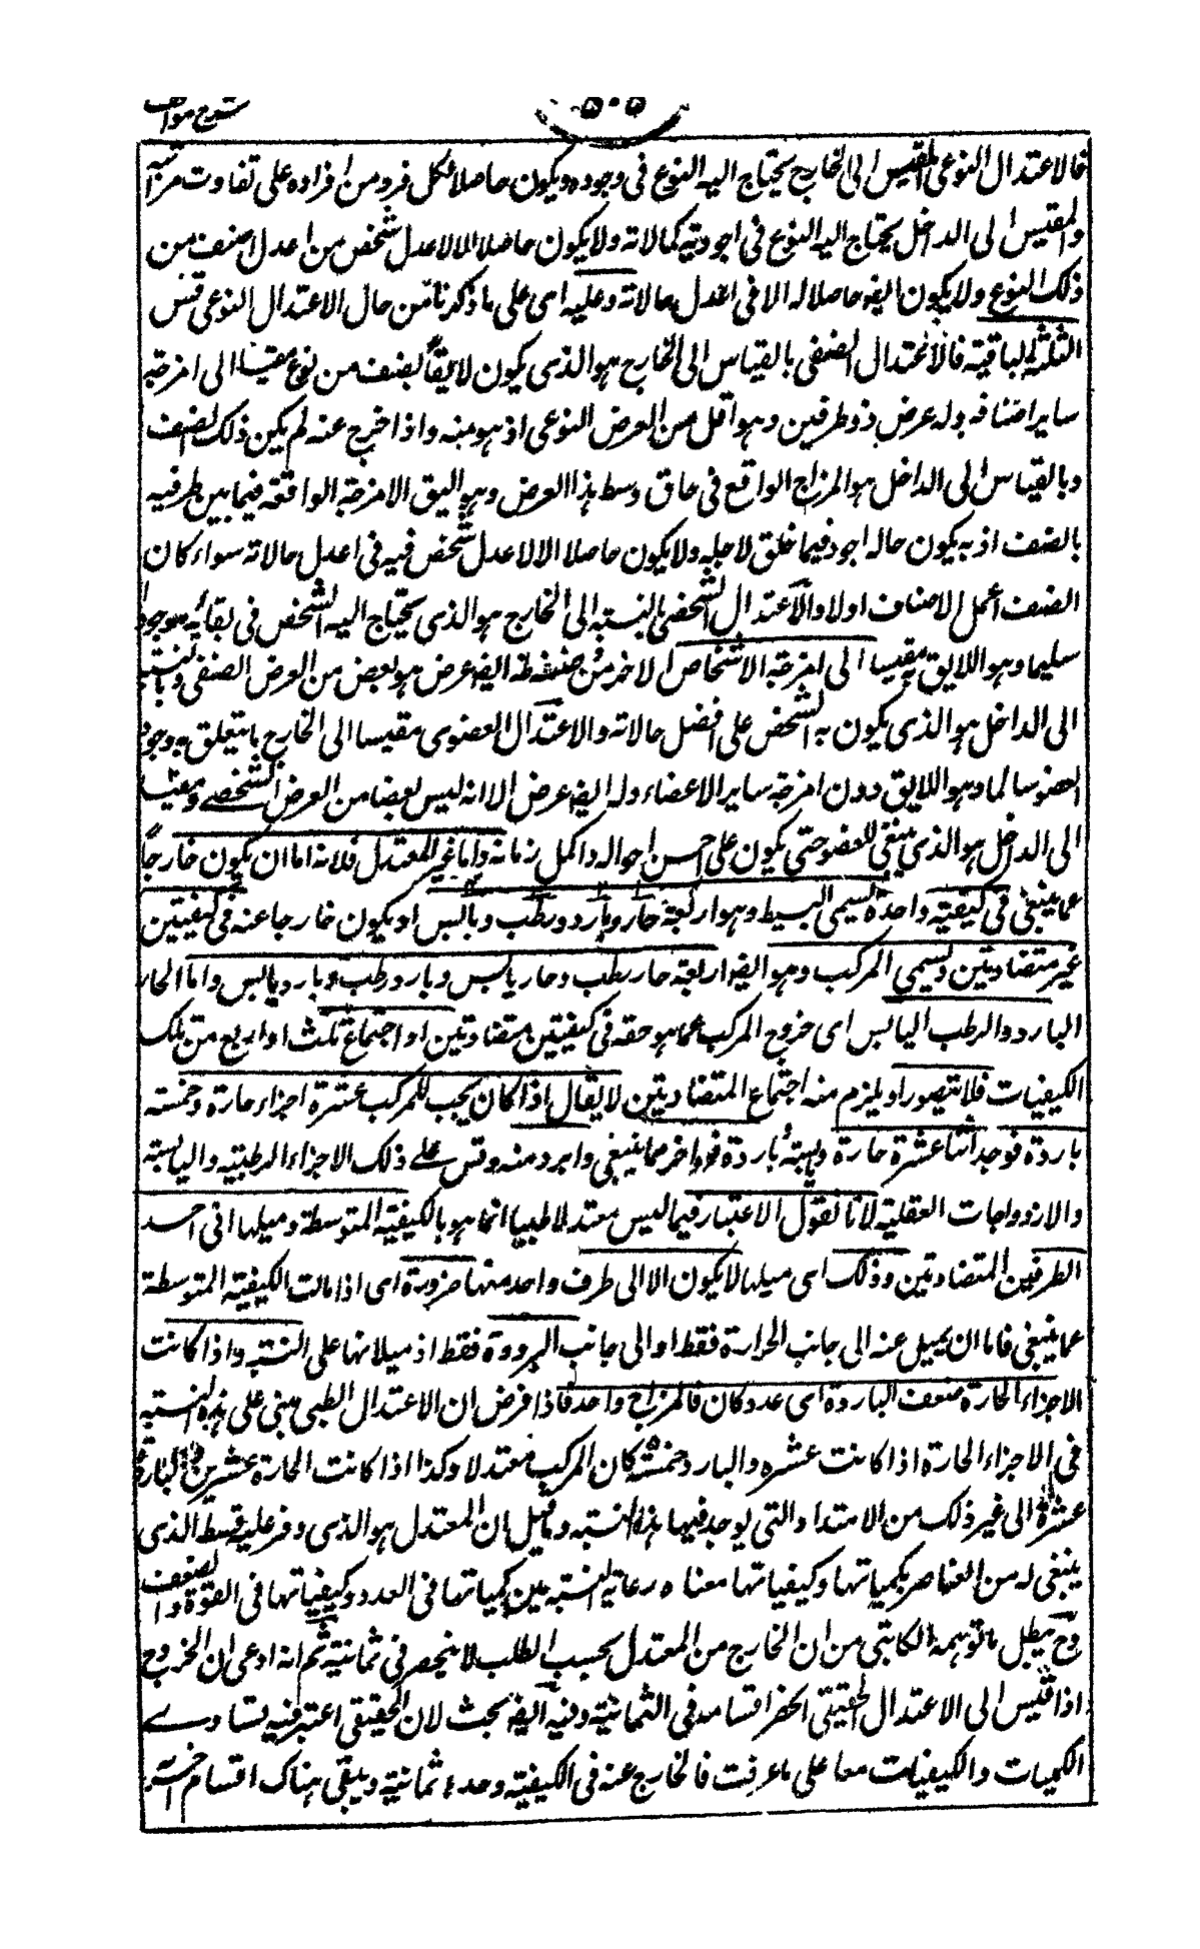 شرح مواقف
٥٠٥
فالاعتدال النوعى المقيس الى الخارج يحتاج اليه النوع فى وجوده ويكون حاصلا لكل فرد من افراده على تفاوت مراتبه
والمقيس الى الداخل يحتاج اليه النوع فى اجودية كمالاته ولا يكون حاصلا الا لاعدل شخص من اعدل صنف من
ذلك النوع ولا يكون ايضا حاصلا له الا فى اعدل حالاته وعليه اى على ما ذكرنا من حال الاعتدال النوعى قس
الثلثة الباقية فالاعتدال الصنفى بالقياس الى الخارج هو الذى يكون لايقا بصنف من نوع مقيسا الى امزجة
ساير اصنافه وله عرض ذو طرفين وهو اقل من العرض النوعى اذ هو منه واذا خرج عنه لم يكن ذلك الصنف
وبالقياس الى الداخل هو المزاج الواقع فى حاق وسط هذا العرض وهو اليق الامزجة الواقعة فيما بين طرفيه
بالصنف اذ به يكون حاله اجود فيما خلق لاجله ولا يكون حاصلا الا لاعدل شخص فيه فى اعدل حالاته سواء كان
الصنف اعدل الاصناف اولا والاعتدال الشخصى بالنسبة الى الخارج هو الذى يحتاج اليه الشخص فى بقائه موجودا
سليما وهو اللايق به مقيسا الى امزجة الاشخاص الاخر من صنفه فله ايضا عرض هو بعض من العرض الصنفى وبالنسبة
الى الداخل هو الذى يكون به الشخص على افضل حالاته والاعتدال العضوى مقيسا الى الخارج ما يتعلق به وجود
العضو سالما وهو اللايق به دون امزجة ساير الاعضاء وله ايضا عرض الا انه ليس بعضا من العرض الشخصى ومقيسا
الى الداخل هو الذى ينبغى للعضو حتى يكون على احسن احواله واكمل زمانه واما غير المعتدل فلانه اما ان يكون خارجا
عما ينبغى فى كيفية واحدة يسمى البسيط وهو اربعة حار وبارد ورطب ويابس او يكون خارجا عنه فى كيفيتين
غير متضادتين ويسمى المركب وهو ايضا اربعة حار رطب وحار يابس وبارد رطب وبارد يابس واما الحار
البارد والرطب اليابس اى خروج المركب عما هو حقه فى كيفيتين متضادتين او اجتماع ثلث او اربع من تلك
الكيفيات فلا يتصور اذ يلزم منه اجتماع المتضادتين لا يقال اذا كان يجب للمركب عشرة اجزاء حارة وخمسة
باردة فوجد اثنا عشرة حارة وستة باردة فهو اخر مما ينبغى وابرد منه وقس على ذلك الاجزاء الرطبية واليابسة
والازدواجات العقلية لانا نقول الاعتبار فيما ليس معتدلا طبيا انما هو بالكيفية المتوسطة وميلها الى احد
الطرفين المتضادتين وذلك اى ميلها لا يكون الا الى طرف واحد منهما ضرورة اى اذا مالت الكيفية المتوسطة
عما ينبغى فاما ان يميل عنه الى جانب الحرارة فقط او الى جانب البرودة فقط اذ ميلانها على النسبة واذا كانت
الاجزاء الحارة ضعف الباردة اى عدد كان فالمزاج واحد فاذا فرض ان الاعتدال الطبى مبنى على هذه النسبة
فى الاجزاء الحارة اذا كانت عشره والبارد خمسة كان المركب معتدلا وكذا اذا كانت الحارة عشرين والباردة
عشرة الى غير ذلك من الامتداد التى يوجد فيها هذه النسبة وما قيل ان المعتدل هو الذى وفر عليه قسط الذى
ينبغى له من العناصر بكمياتها وكيفياتها معناه رعاية النسبة بين كمياتها فى العدد وكيفياتها فى القوة والضعف
وح يبطل ما توهمه الكاتبى من ان الخارج من المعتدل بحسب الطلب لا ينحصر فى ثمانية ثم انه ادعى ان الخروج
اذا قيس الى الاعتدال الحقيقى انحصر اقسامه فى الثمانية وفيه ايضا بحث لان الحقيقى اعتبر فيه تساوى
الكميات والكيفيات معا على ما عرفت فالخارج عنه فى الكيفية وحده ثمانية ويبقى هناك اقسام اخر